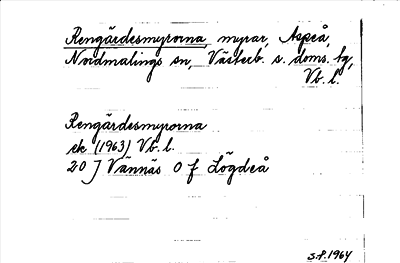 Rengärdesmyrorna, myrar, Aspeå,
Nordmalings sn, Västerb. s. doms. tg,
Vb. l.
Rengärdesmyrorna
ek (1963) Vb. l.
20 J Vännäs O f Lögdeå
S.P. 1964